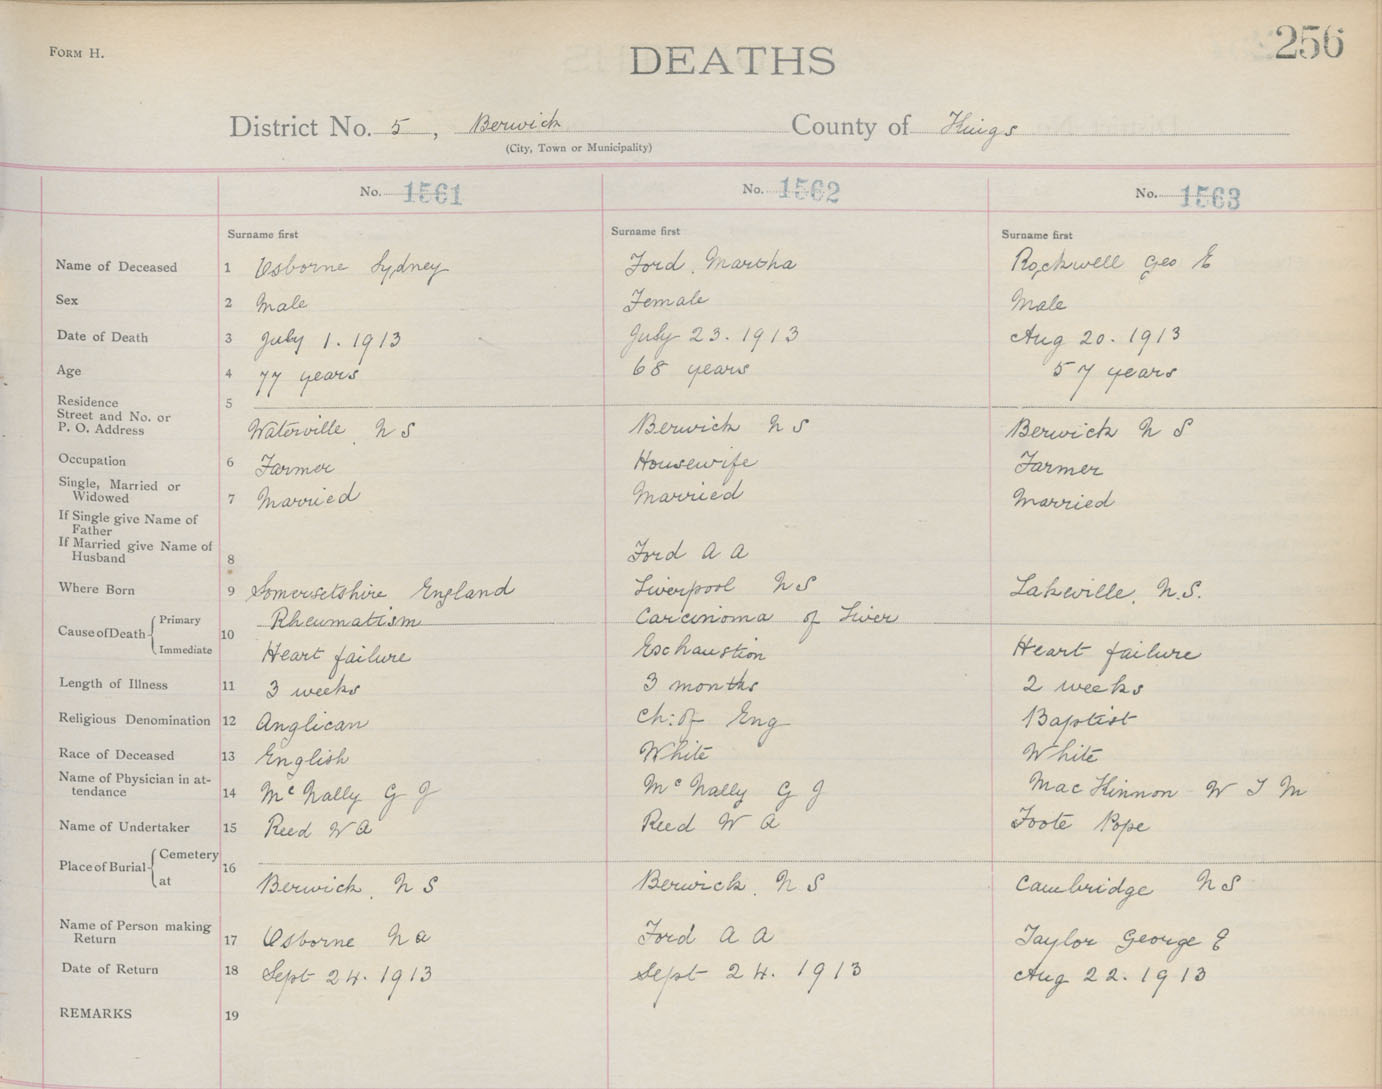 FORM H.
DEATHS
256
District No. 5, Berwick County of Kings
(City, Town or Municipality)
No. 1561 No. 1562 No. 1563
Surname first Surname first Surname first
Name of Deceased 1 Osborne Sydney Ford, Martha Rockwell Geo E
Sex 2 Male Female Male
Date of Death 3 July 1. 1913 July 23. 1913 Aug 20. 1913
Age 4 77 years 68 years 57 years
Residence 5
Street and No. or
P. O. Address Waterville N S Berwick N S Berwick N S
Occupation 6 Farmer Housewife Farmer
Single, Married or
Widowed 7 Married Married Married
If Single give Name of
Father
If Married give Name of
Husband 8 Ford A A
Where Born 9 Somersetshire England Liverpool N S Lakeville, N.S.
Cause of Death Primary 10 Rheumatism Carcinoma of Liver
Immediate Heart failure Exchaustion Heart failure
Length of Illness 11 3 weeks 3 months 2 weeks
Religious Denomination 12 Anglican Ch: of Eng Baptist
Race of Deceased 13 English White White
Name of Physician in at-
tendance 14 McNally G J McNally G J MacKinnon W I M
Name of Undertaker 15 Reed W A Reed W A Foote Pope
Place of Burial Cemetery 16
at Berwick, N S Berwick, N S Cambridge N S
Name of Person making
Return 17 Osborne N a Ford A A Taylor George E
Date of Return 18 Sept 24. 1913 Sept 24. 1913 Aug 22. 1913
REMARKS 19